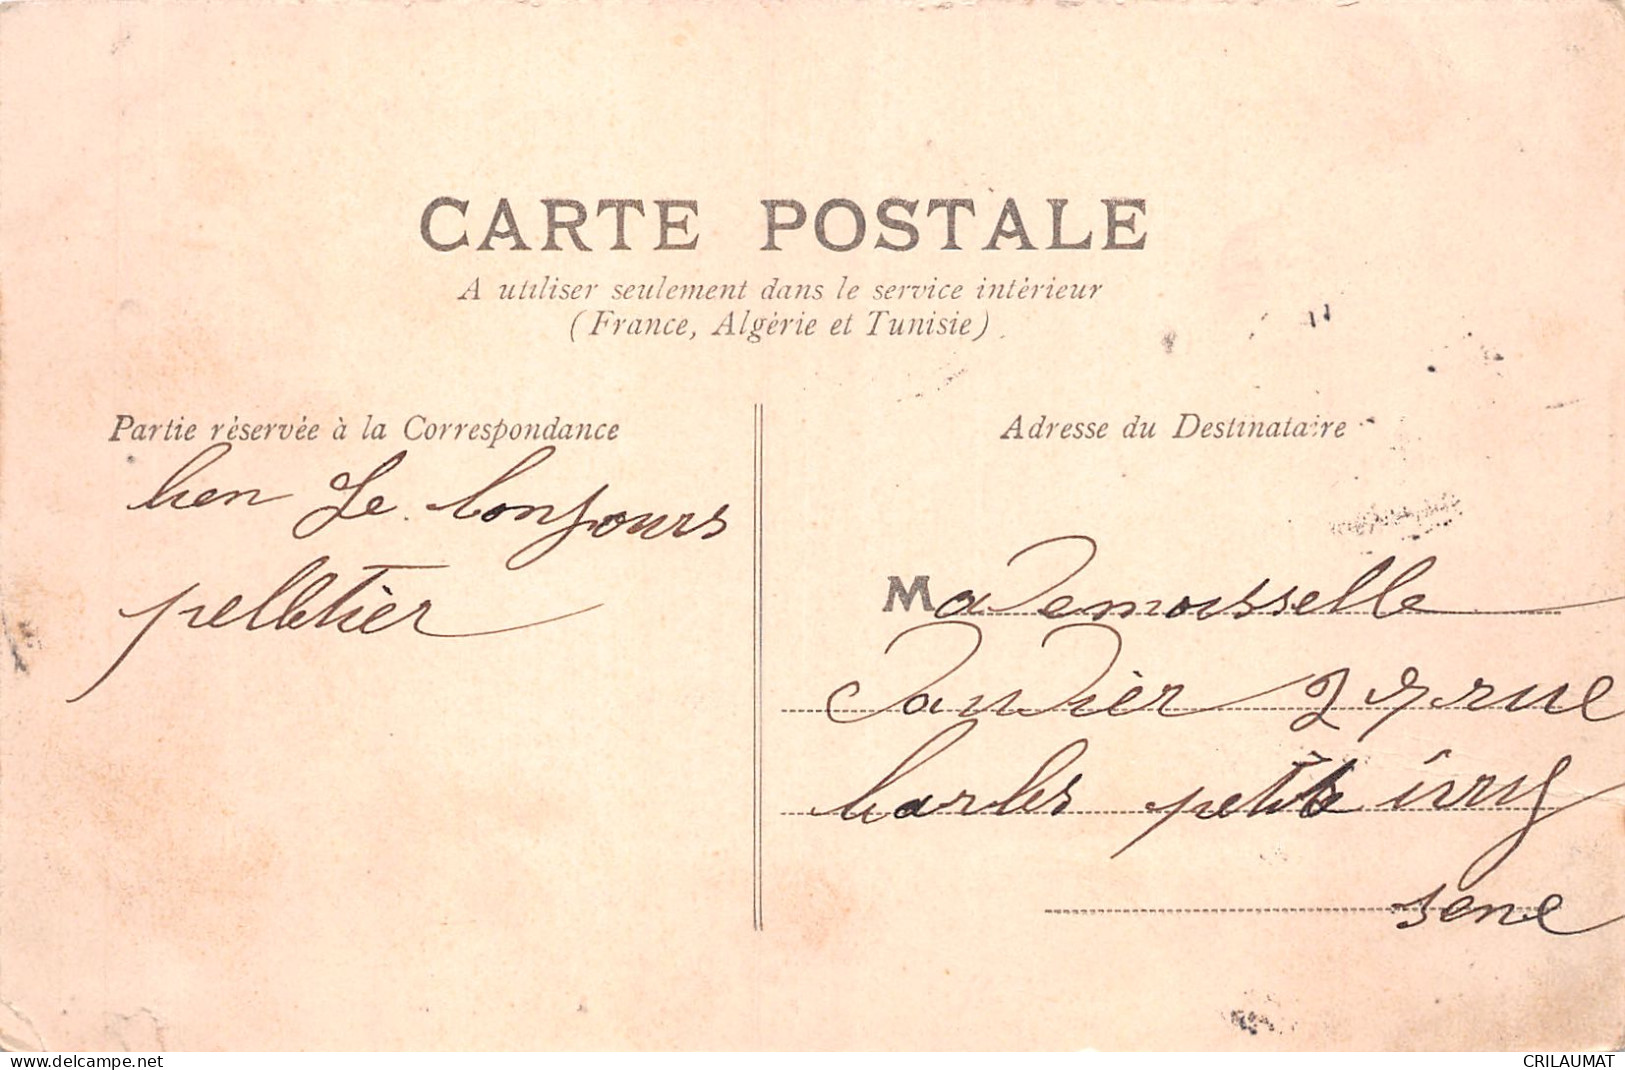 CARTE POSTALE
A utiliser seulement dans le service intérieur
(France, Algérie et Tunisie)
Partie réservée à la Correspondance
bien le bonjours
pelletier
Adresse du Destinataire
Mademoisselle
27 rue
Charles petits ivry
sene
www.delcampe.net
CRILAUMAT